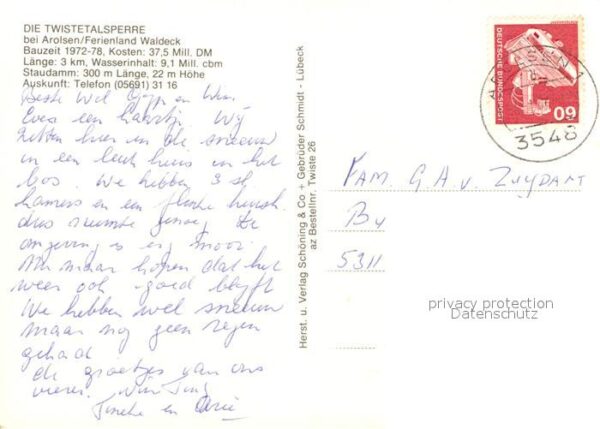 DIE TWISTETALSPERRE
bei Arolsen/Ferienland Waldeck
Bauzeit 1972-78, Kosten: 37,5 Mill. DM
Länge: 3 km, Wasserinhalt: 9,1 Mill. cbm
Staudamm: 300 m Länge, 22 m Höhe
Auskunft: Telefon (05691) 31 16
Beste Wil en
Even een kaartje. Wij
zitten hier in de sneeuw
in een leuk huis in het
bos. We hebben 3 sl.
kamers en een keuk.
dus ruimte genoeg. De
omgeving is erg mooi.
Nu maar hopen dat het
weer ook goed blijft
We hebben wel sneeuw
maar nog geen regen
gehad.
de groetjes van ons
vieren.
Tineke en Arie
Herst. u. Verlag Schöning & Co + Gebrüder Schmidt - Lübeck
az Bestellnr. Twiste 26
DEUTSCHE BUNDESPOST
60
3548
Fam. G.A. v. Zuydam
By
5311
privacy protection
Datenschutz